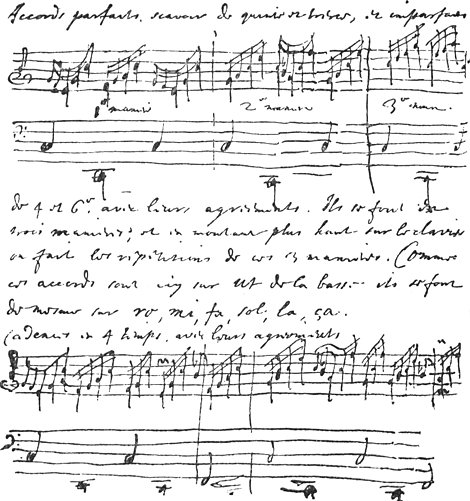 Accords parfaits, scavoir de quinte et tierce, et imparfaits
1re maniere 2e maniere 3e man.
de 4 et 6te, avec leurs agréements. Ils se font de
trois manieres; et en montant plus haut sur le clavier
on fait les répétitions de ces 3 manieres. Comme
ces accords sont icy sur ut de la basse ils se font
de mesme sur re, mi, fa, sol, la, ça.
Cadences en 4 temps, avec leurs agréements